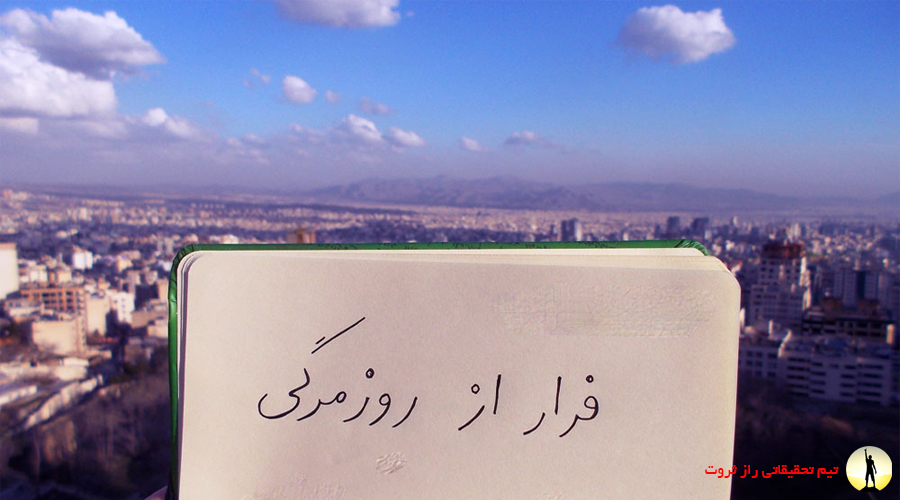 فرار از روزمرگی
تیم تحقیقاتی راز ثروت